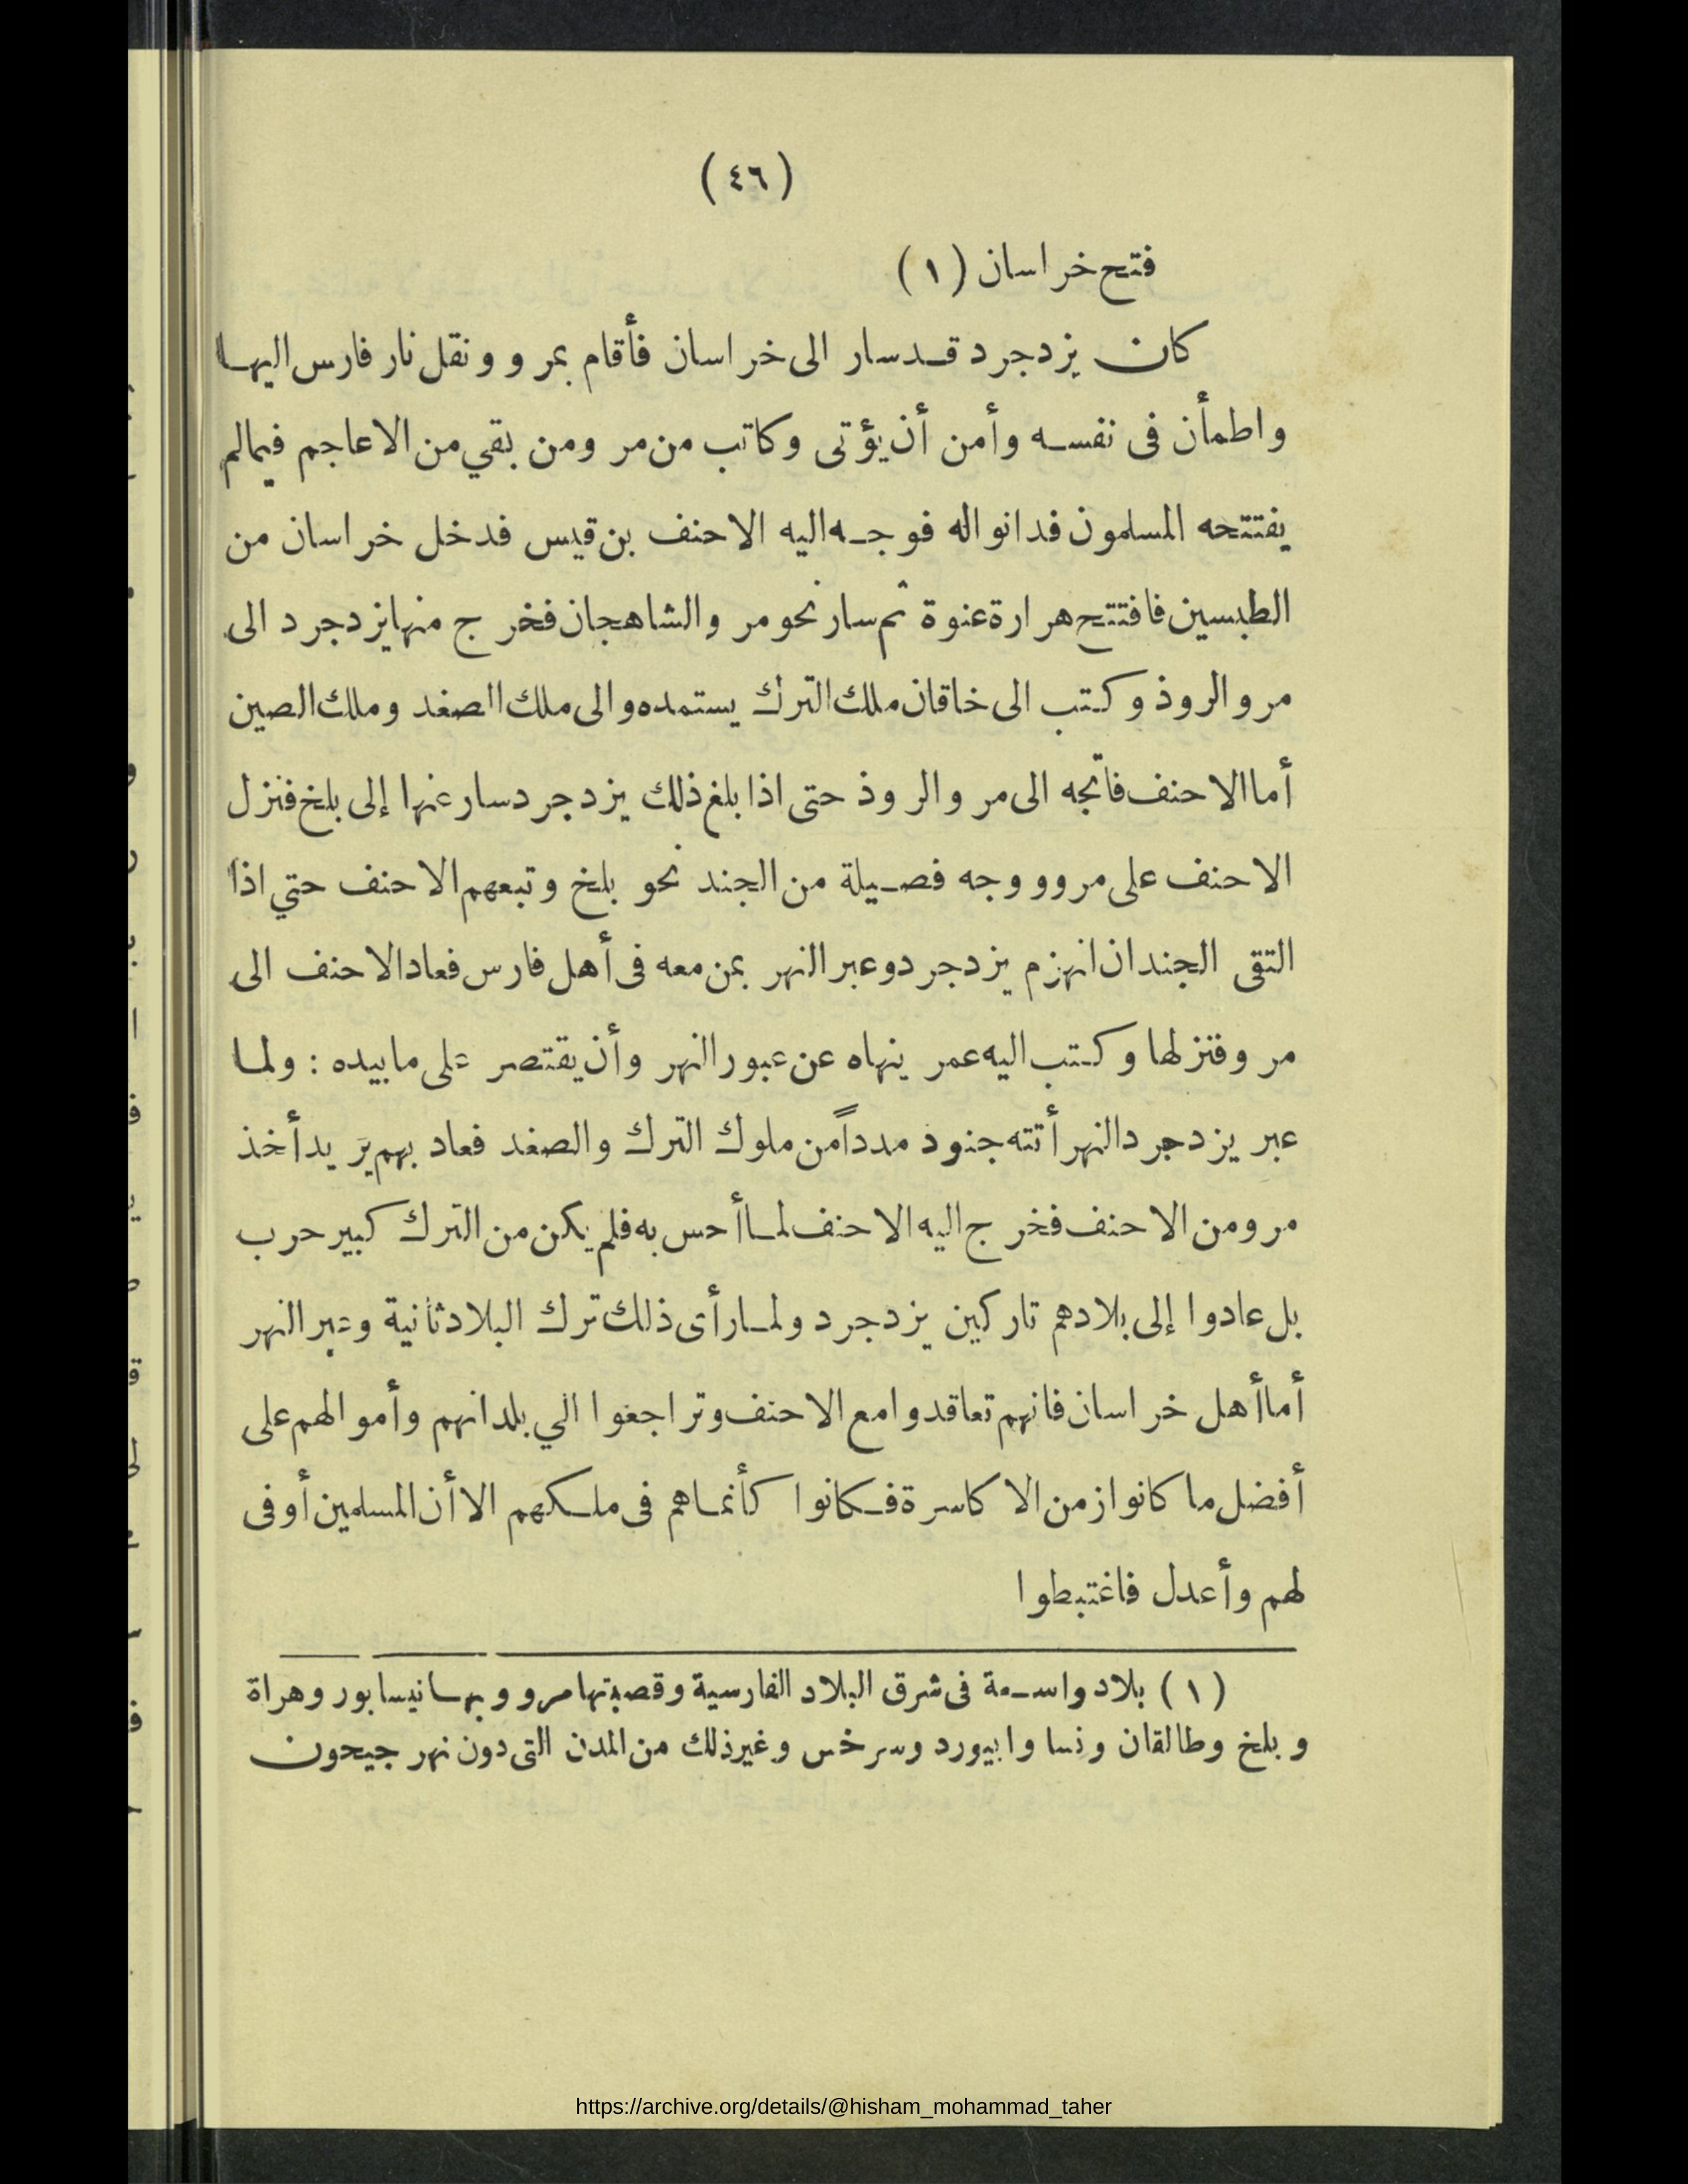 (٤٦)
فتح خراسان (١)
كان يزدجرد قد سار الى خراسان فأقام بمرو ونقل نار فارس اليها
واطمأن فى نفسه وأمن أن يؤتى وكاتب من مرو ومن بقي من الاعاجم فيما لم
يفتتحه المسلمون فدانوا له فوجه اليه الاحنف بن قيس فدخل خراسان من
الطبسين فافتتح هراة عنوة ثم سار نحو مرو الشاهجان فخرج منها يزدجرد الى
مرو الروذ وكتب الى خاقان ملك الترك يستمده والى ملك الصغد وملك الصين
أما الاحنف فاتجه الى مرو الروذ حتى اذا بلغ ذلك يزدجرد سار عنها إلى بلخ فنزل
الاحنف على مرو ووجه فصيلة من الجند نحو بلخ وتبعهم الاحنف حتي اذا
التقى الجندان انهزم يزدجرد وعبر النهر بمن معه فى أهل فارس فعاد الاحنف الى
مرو فنزلها وكتب اليه عمر ينهاه عن عبور النهر وأن يقتصر على ما بيده : ولما
عبر يزدجرد النهر أتته جنود مدداً من ملوك الترك والصغد فعاد بهم يريد أخذ
مرو من الاحنف فخرج اليه الاحنف لما أحس به فلم يكن من الترك كبير حرب
بل عادوا إلى بلادهم تاركين يزدجرد ولما رأى ذلك ترك البلاد ثانية وعبر النهر
أما أهل خراسان فانهم تعاقدوا مع الاحنف وتراجعوا الي بلدانهم وأموالهم على
أفضل ما كانوا زمن الاكاسرة فكانوا كأنما هم فى ملكهم الا أن المسلمين أوفى
لهم وأعدل فاغتبطوا
(١) بلاد واسعة فى شرق البلاد الفارسية وقصبتها مرو وبها نيسابور وهراة
وبلخ وطالقان ونسا وابيورد وسرخس وغير ذلك من المدن التى دون نهر جيحون
https://archive.org/details/@hisham_mohammad_taher